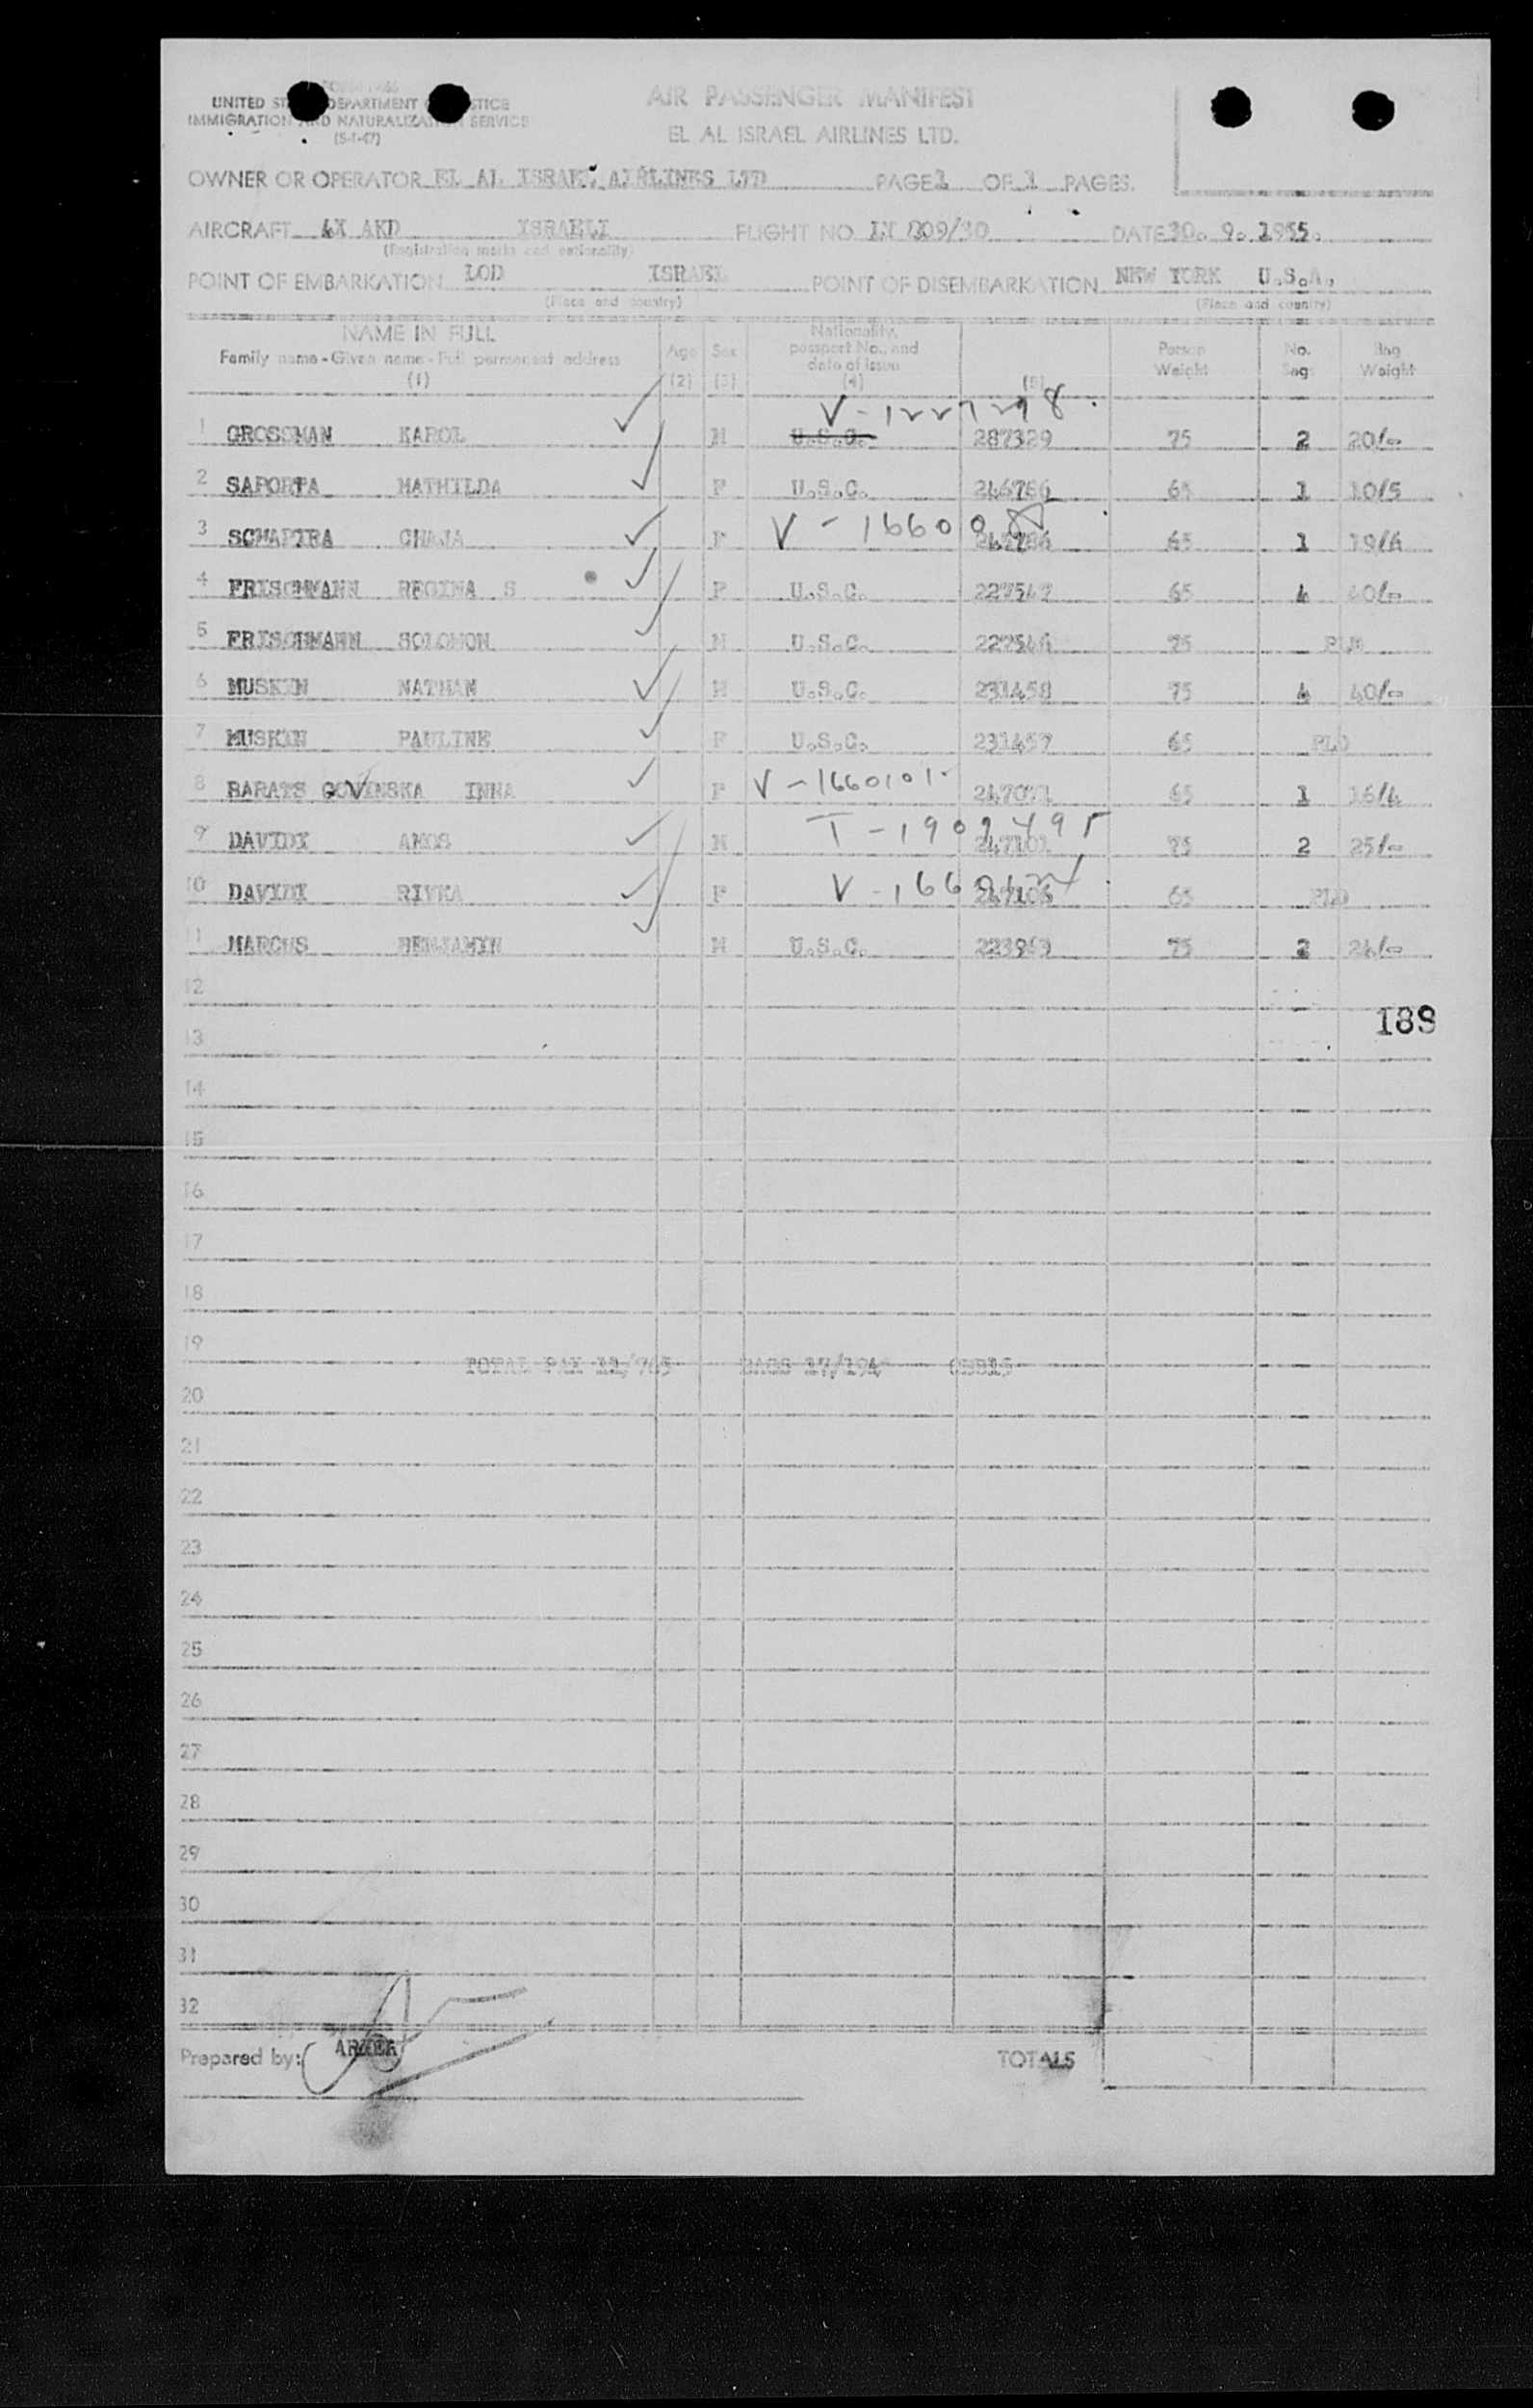 UNITED STATES DEPARTMENT OF JUSTICE
IMMIGRATION AND NATURALIZATION SERVICE
(5-1-47)
AIR PASSENGER MANIFEST
EL AL ISRAEL AIRLINES LTD.
OWNER OR OPERATOR EL AL ISRAEL AIRLINES LTD PAGE 1 OF 1 PAGES.
AIRCRAFT 4X AKD ISRAELI FLIGHT NO. LY 009/30 DATE 30. 9. 1955.
(Registration marks and nationality)
POINT OF EMBARKATION LOD ISRAEL POINT OF DISEMBARKATION NEW YORK U.S.A.
(Place and country) (Place and country)
NAME IN FULL
Family name - Given name - Full permanent address
(1)
Age
(2)
Sex
(3)
Nationality,
passport No., and
date of issue
(4)
(5)
Person
Weight
No.
Bags
Bag
Weight
V-
1 GROSSMAN KAROL M U.S.C. 287329 75 2 20/-
2 SAPORTA MATHILDA F U.S.C. 246786 65 1 10/5
V - 16600
3 SCHAPIRA CHAJA F 65 1 19/6
4 FRISCHMANN REGINA S F U.S.C. 227547 65 4 40/-
5 FRISCHMANN SOLOMON M U.S.C. 227546 75 PLD
6 MUSKIN NATHAN M U.S.C. 231458 75 4 40/-
7 MUSKIN PAULINE F U.S.C. 231457 65 PLD
8 BARATS GOVINSKA INNA F V-1660101 247071 65 1 16/4
T -
9 DAVIDI AMOS M 247101 75 2 25/-
V - 166
10 DAVIDI RIVKA F 65 PLD
11 MARCUS BENJAMIN M U.S.C. 223963 75 2 24/-
12
189
13
14
15
16
17
18
19
TOTAL PAX 11/765 BAGS 17/194
20
21
22
23
24
25
26
27
28
29
30
31
32
Prepared by:
TOTALS